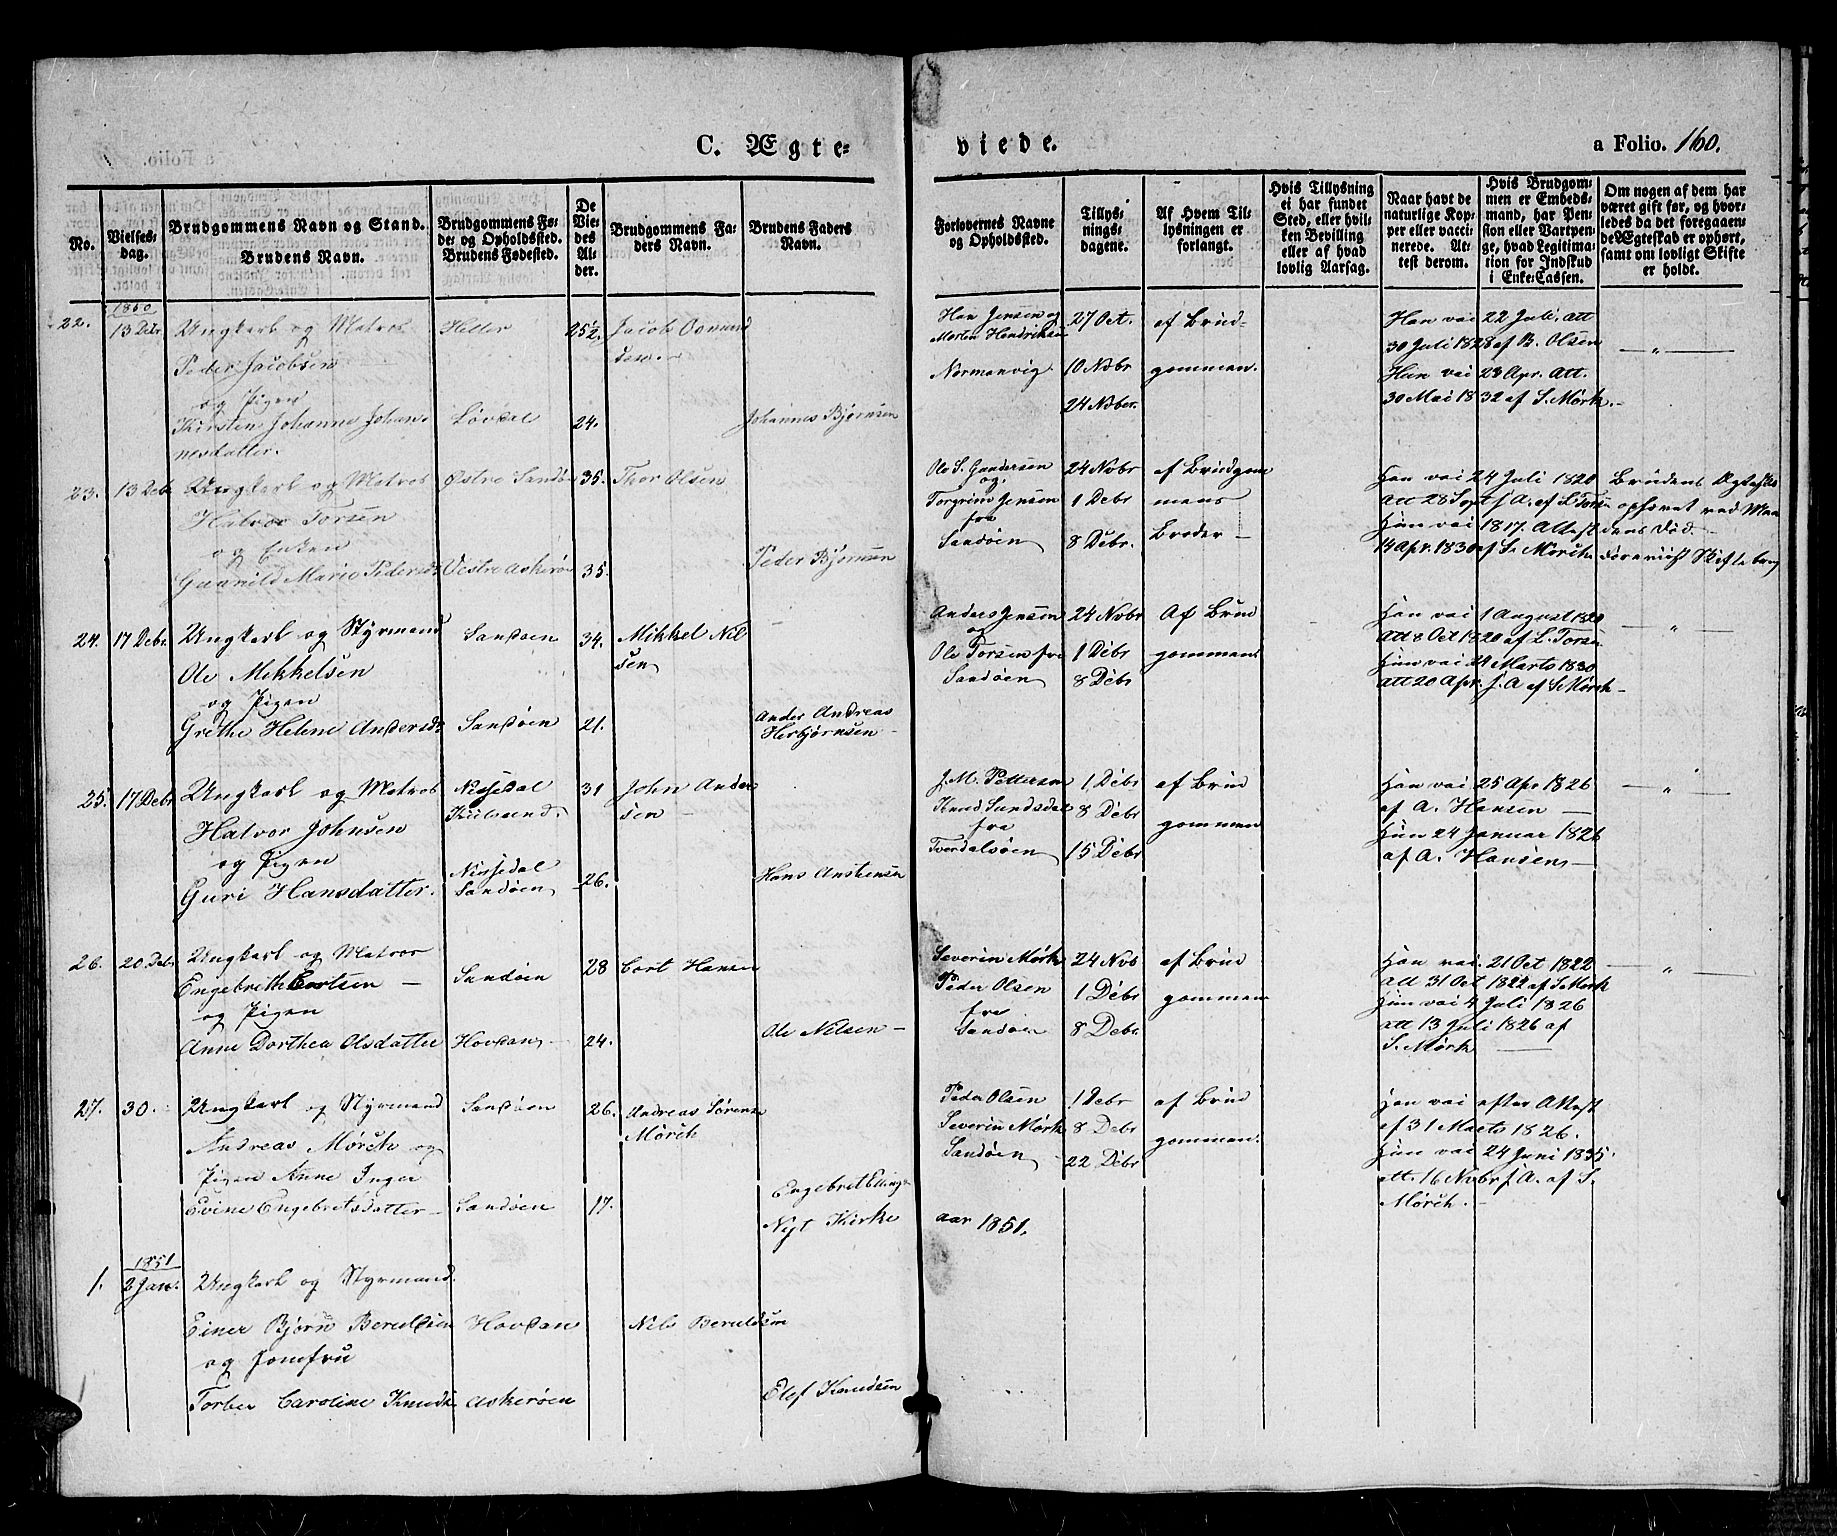 C. Ægte-
viede.
a Folio. 160.
No.
Vielses-
dag.
Brudgommens Navn og Stand.
Brudens Navn.
Brudgommens Fø-
de- og Opholdssted.
Brudens Fødested.
De
Vie-
des
Al-
der.
Brudgommens Fa-
ders Navn.
Brudens Faders
Navn.
Forlovernes Navne
og Opholdssted.
Tillys-
nings-
dagene.
Af Hvem Til-
lysningen er
forlangt.
Hvis Tillysning
ei har fundet
Sted, eller hvil-
ken Bevilling
eller af hvad
lovlig Aarsag.
Naar havt de
naturlige Kop-
per eller vacci-
nerede. At-
test derom.
Hvis Brudgom-
men er Embeds-
mand, har Pen-
sion eller Vartpen-
ge, hvad Legitima-
tion for Indskud
i Enke-Cassen.
Om nogen af dem har
været gift før, og hvor-
ledes da det foregaaen-
de Ægteskab er ophørt,
samt om lovligt Skifte
er holdt.
1850
22. 13 Debr Ungkarl og Matros
Peder Jacobsen
og Pigen
Kirsten Johanne Johan-
nesdatter.
Heller
Løvdal
25½.
24.
Jacob
Johannes Bjørnsen
Han Jensen og
Morten Hendriksen
Normanvig
27 Oct.
10 Nobr
24 Nober.
af Brud-
gommen.
Han vac 22 Juli. Att
30 Juli 1828 af B. Olsen
Hun vac 23 Apr. Att.
30 Mai 1832 af S. Mørk.
23. 13 Debr Ungkarl og Matros
Halvor Torsen
og Enken
Gunnild Marie Pedersd
Østre Sandøe
Vestre Askerøe
35.
35.
Thor Olsen
Peder Bjørnsen
Ole S. Gundersen
og
Torgrim Jensen
fra
Sandøen
24 Nobr
1 Debr
8 Debr.
af Brudgom
mens
Broder
Han vac 24 Juli 1820
att 28 Sept s. A. af L. Torsen
Hun vac 1817. Attest
14 Apr. 1830 af S. Mørch
Brudens Ægteskab
ophævet ved Man
dens Død.
Foreviist Skiftebrev
24. 17 Debr. Ungkarl og Styrmand
Ole Mikkelsen
og Pigen
Grethe Helene Andersdr
Sandøen
Sandøen
34.
21.
Mikkel Nil
sen
Ander Andreas
Herbjørnsen
Anders Jensen
og
Ole Torsen fra
Sandøen
24 Nobr
1 Debr
8 Debr
Af Brud
gommen
Han vac 1 August 1820
att 8 Oct 1820 af L. Torsen
Hun vac 24 Marts 1830
att 20 Apr. s. A af S. Mørch
25. 17 Debr Ungkarl og Matros
Halvor Johnsen
og Pigen
Guri Hansdatter.
Nissedal
Nissedal
Sandøen
31
26.
John Ander
sen
Hans Anstensen
J. M. Pettersen
Knud Sundsdal
fra
Tverdalsøen
1 Debr
8 Debr
15 Debr
af Brud
gommen
Han vac 25 Apr 1826
af A. Hansen
Hun 24 Januar 1826
af A. Hansen
26. 20 Debr Ungkarl og Matros
Engebreth Cortsen
og Pigen
Anne Dorthea Olsdatter
Sandøen
Hovdan
28
24.
Cort Hansen
Ole Nilsen
Severin Mørk
Peder Olsen
fra
Sandøen
24 Nob
1 Debr
8 Debr.
af Brud
gommen
Han vac 21 Oct 1822
att 31 Oct 1822 af S. Mørk
Hun vac 4 Juli 1826
att 13 Juli 1826 af
S. Mørk
27. 30. Ungkarl og Styrmand
Andreas Mørch og
Pigen Anne Inger
Evine Engebretsdatter
Sandøen
Sandøen
26.
17.
Andreas Sørensen
Mørch
Engebret
Peder Olsen
Severin Mørk
Sandøen
1 Debr
8 Debr
22 Debr
af Brud
gommen.
Han vac efter Attest
af 31 Marts 1826.
Hun vac 24 Juni 1835
att. 16 Novbr s. A. af S.
Mørch.
Nyt Kirke
aar 1851.
1851
1. 2 Jan. Ungkarl og Styrmand
Einer Bjørn Beruldsen
og Jomfru
Torber Caroline Knuds
Hovdan
Askerøen
Nils Beruldsen
Elef Knudsen